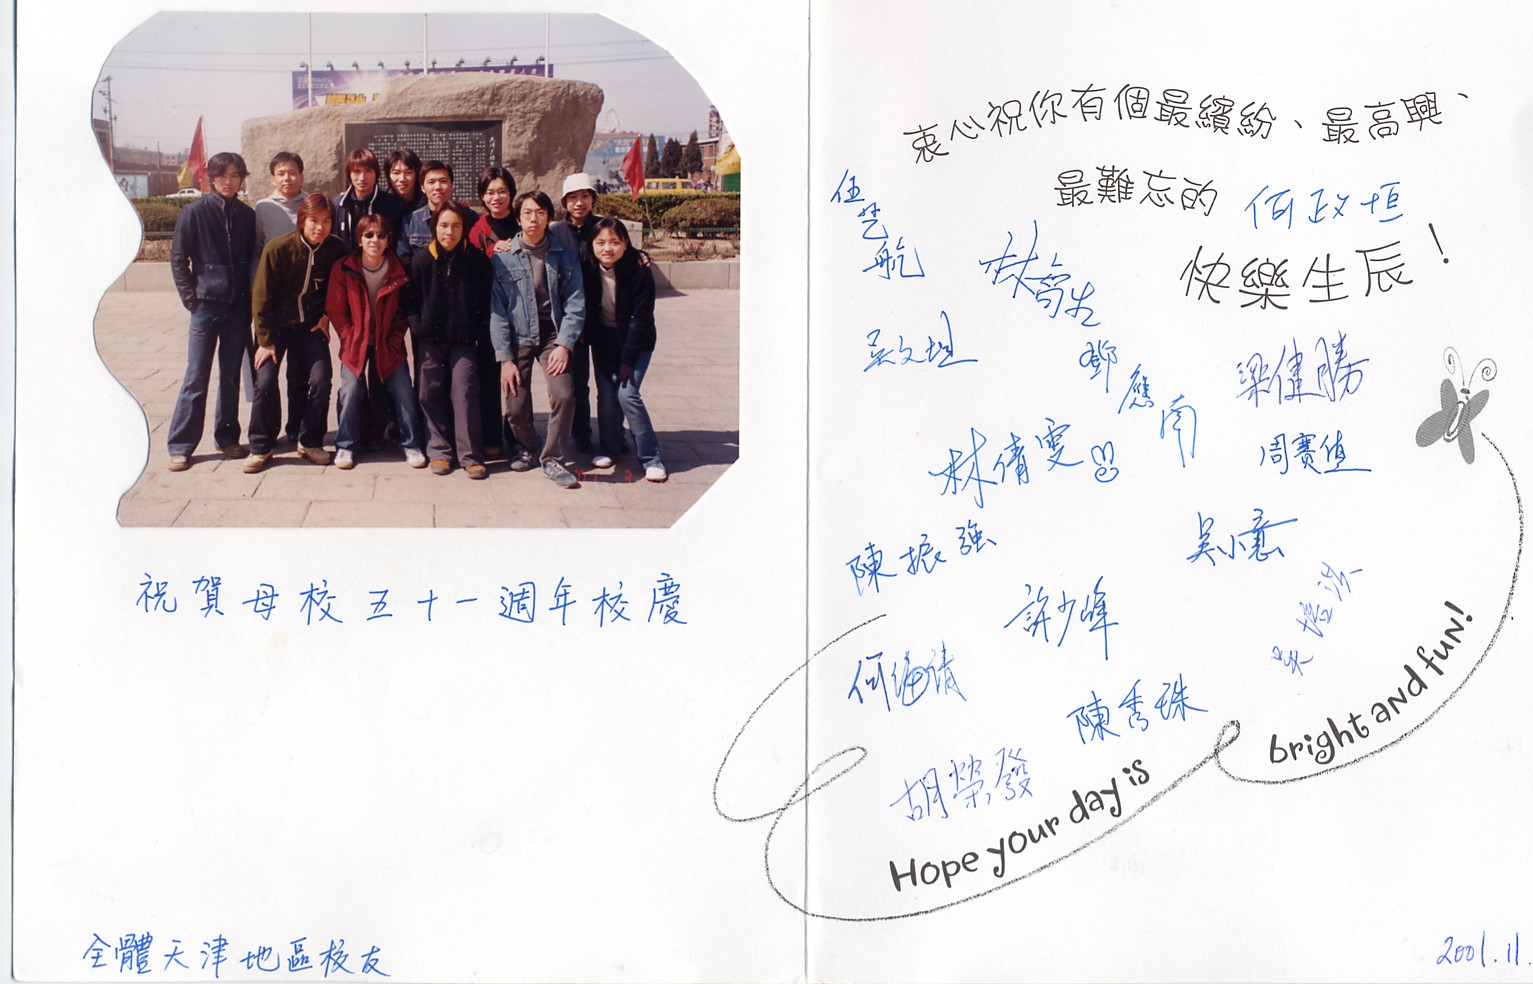 祝賀母校五十一週年校慶
全體天津地區校友
衷心祝你有個最繽紛、最高興、
最難忘的 何政垣
快樂生辰！
任芝航
林富生
吳文坦
鄧應南
梁健勝
林倩雯
周賽值
陳振強
吳小慧
許少峰
陳秀珠
胡榮發
Hope your day is bright and fun!
2001.11.